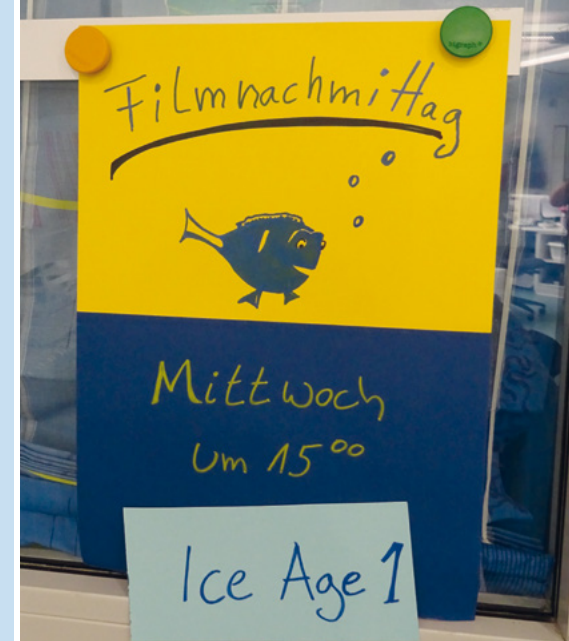 Filmnachmittag
Mittwoch
um 15⁰⁰
Ice Age 1